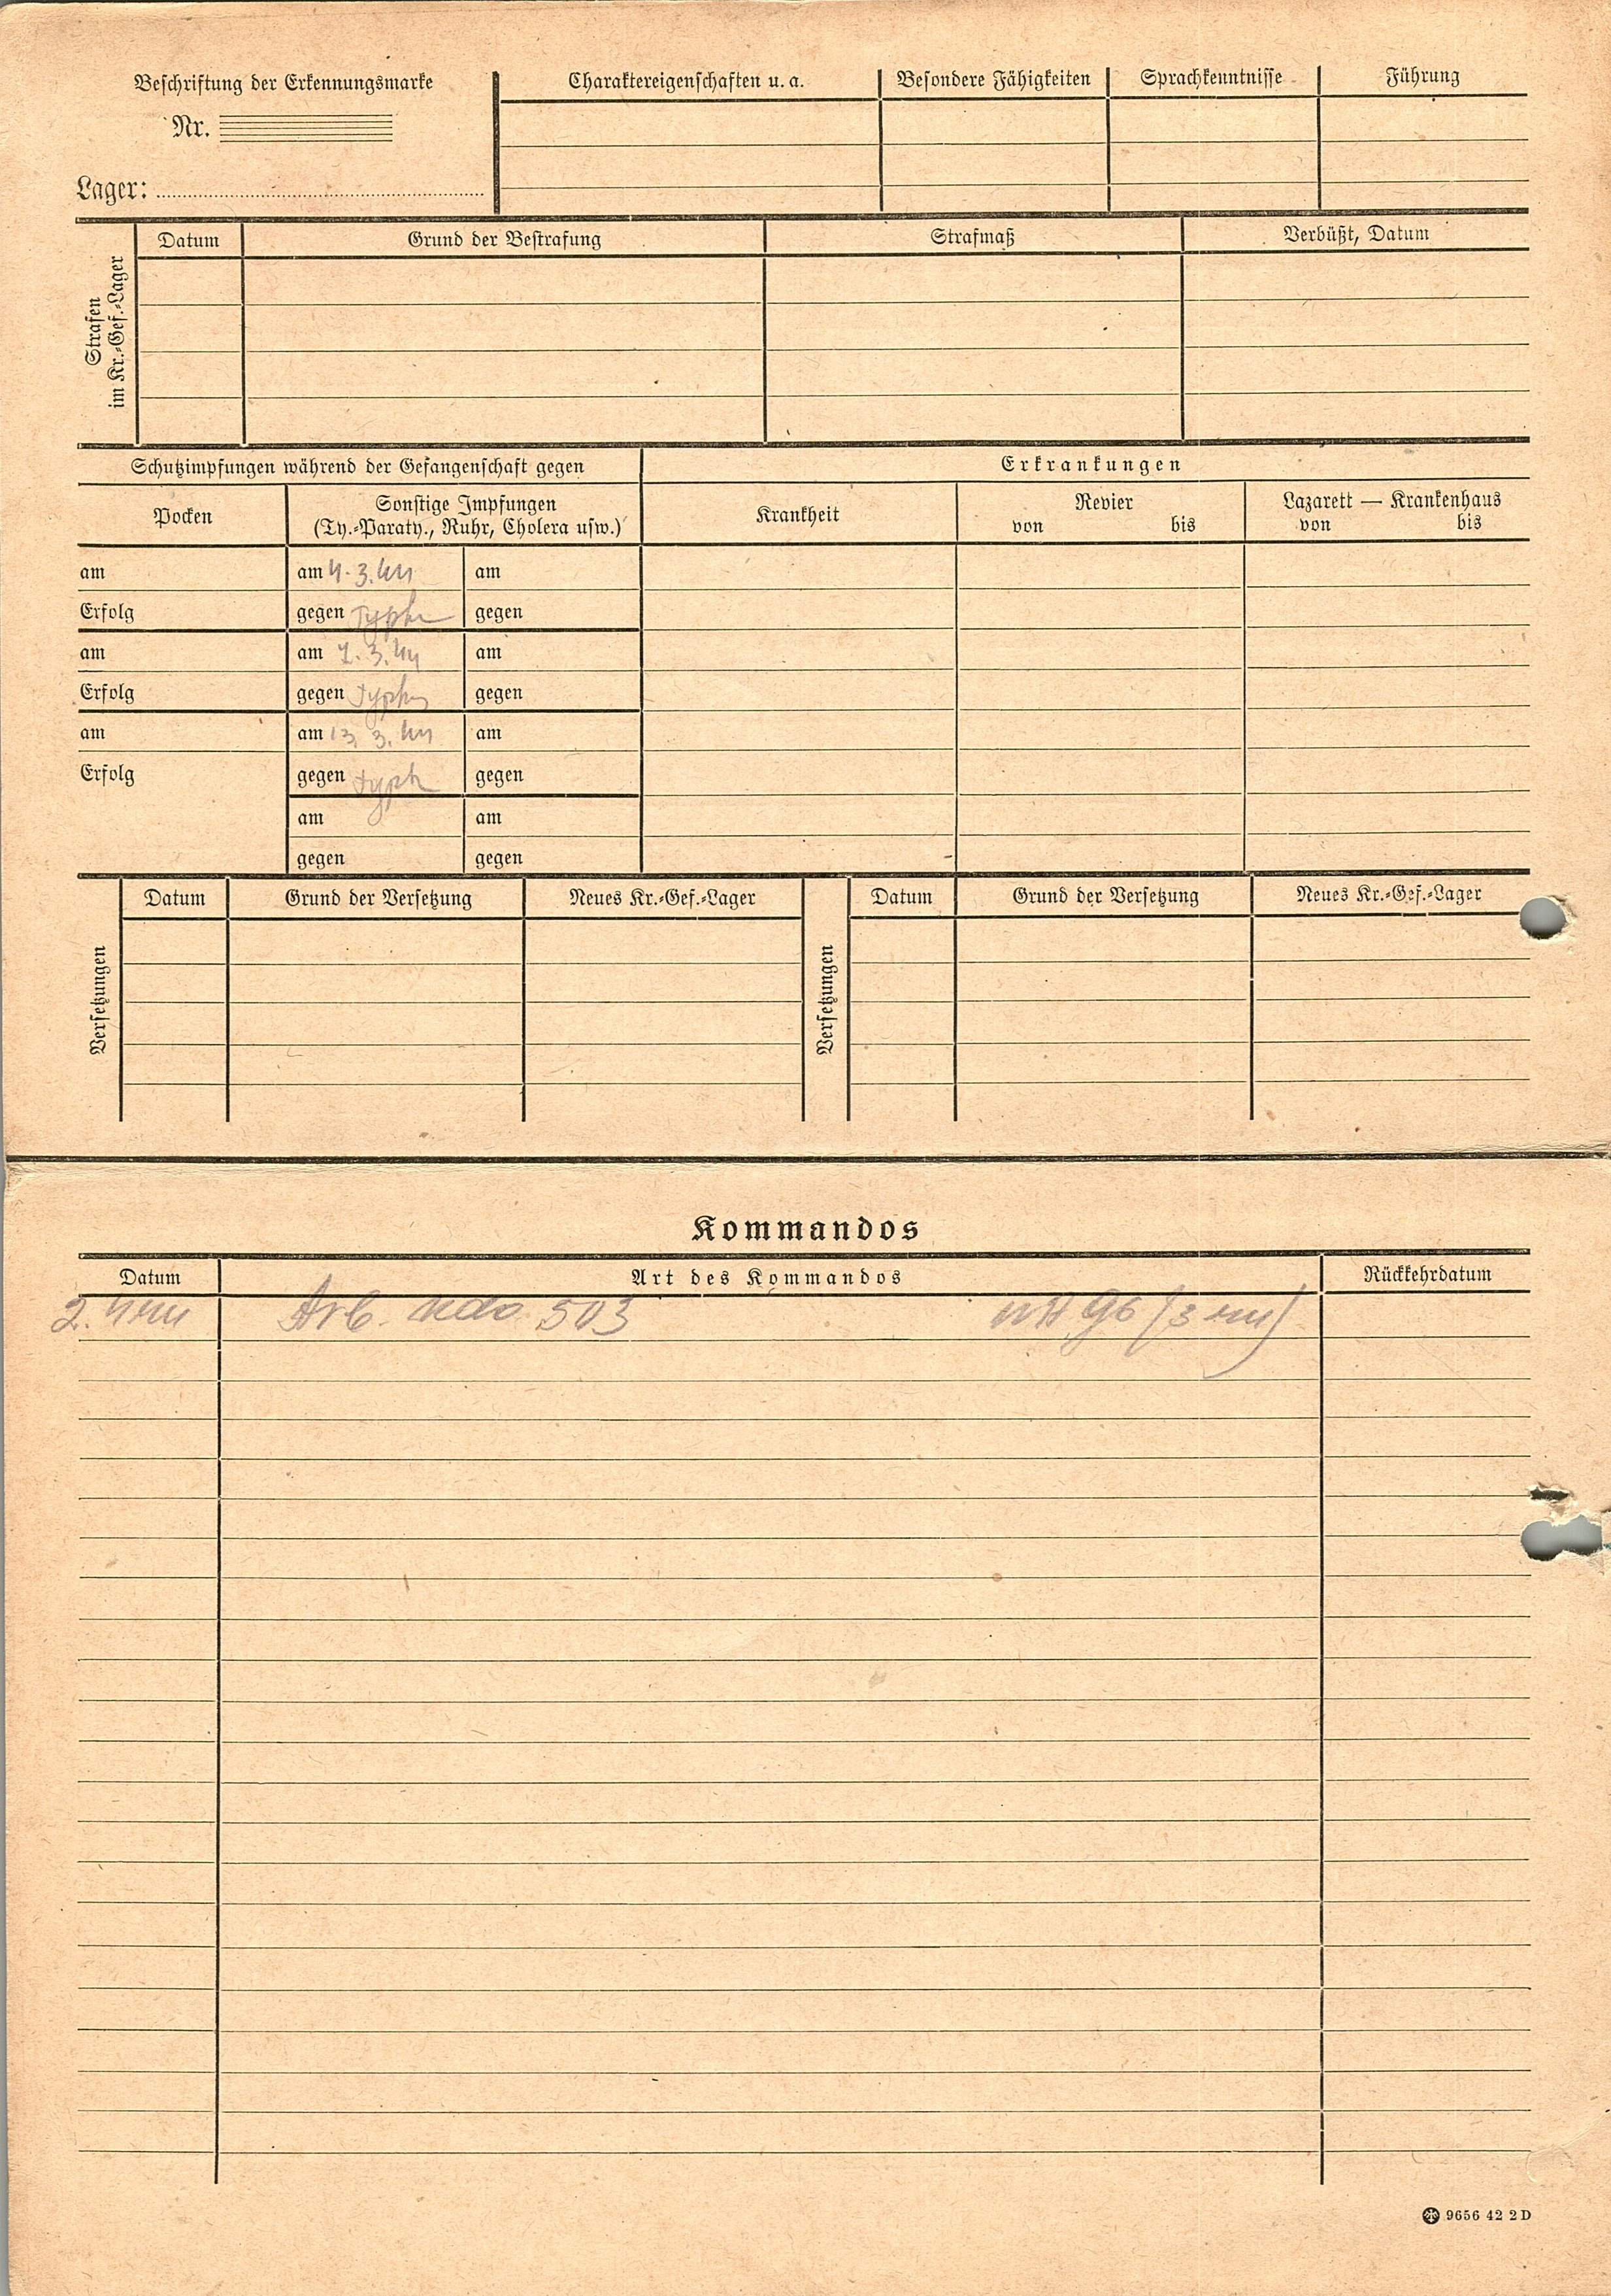 Beschriftung der Erkennungsmarke
Nr.
Lager:
Charaktereigenschaften u. a.
Besondere Fähigkeiten
Sprachkenntnisse
Führung
Strafen
im Kr.-Gef.-Lager
Datum
Grund der Bestrafung
Strafmaß
Verbüßt, Datum
Schutzimpfungen während der Gefangenschaft gegen
Erkrankungen
Pocken
Sonstige Impfungen
(Ty.-Paraty., Ruhr, Cholera usw.)
Krankheit
Revier
von bis
Lazarett — Krankenhaus
von bis
am am 4.3.44 am
Erfolg gegen Typh gegen
am am 7.3.44 am
Erfolg gegen Typh gegen
am am 13.3.44 am
Erfolg gegen Typh gegen
am am
gegen gegen
Versetzungen
Datum
Grund der Versetzung
Neues Kr.-Gef.-Lager
Versetzungen
Datum
Grund der Versetzung
Neues Kr.-Gef.-Lager
Kommandos
Datum Art des Kommandos Rückkehrdatum
Arb. Kdo. 503
9656 42 2 D